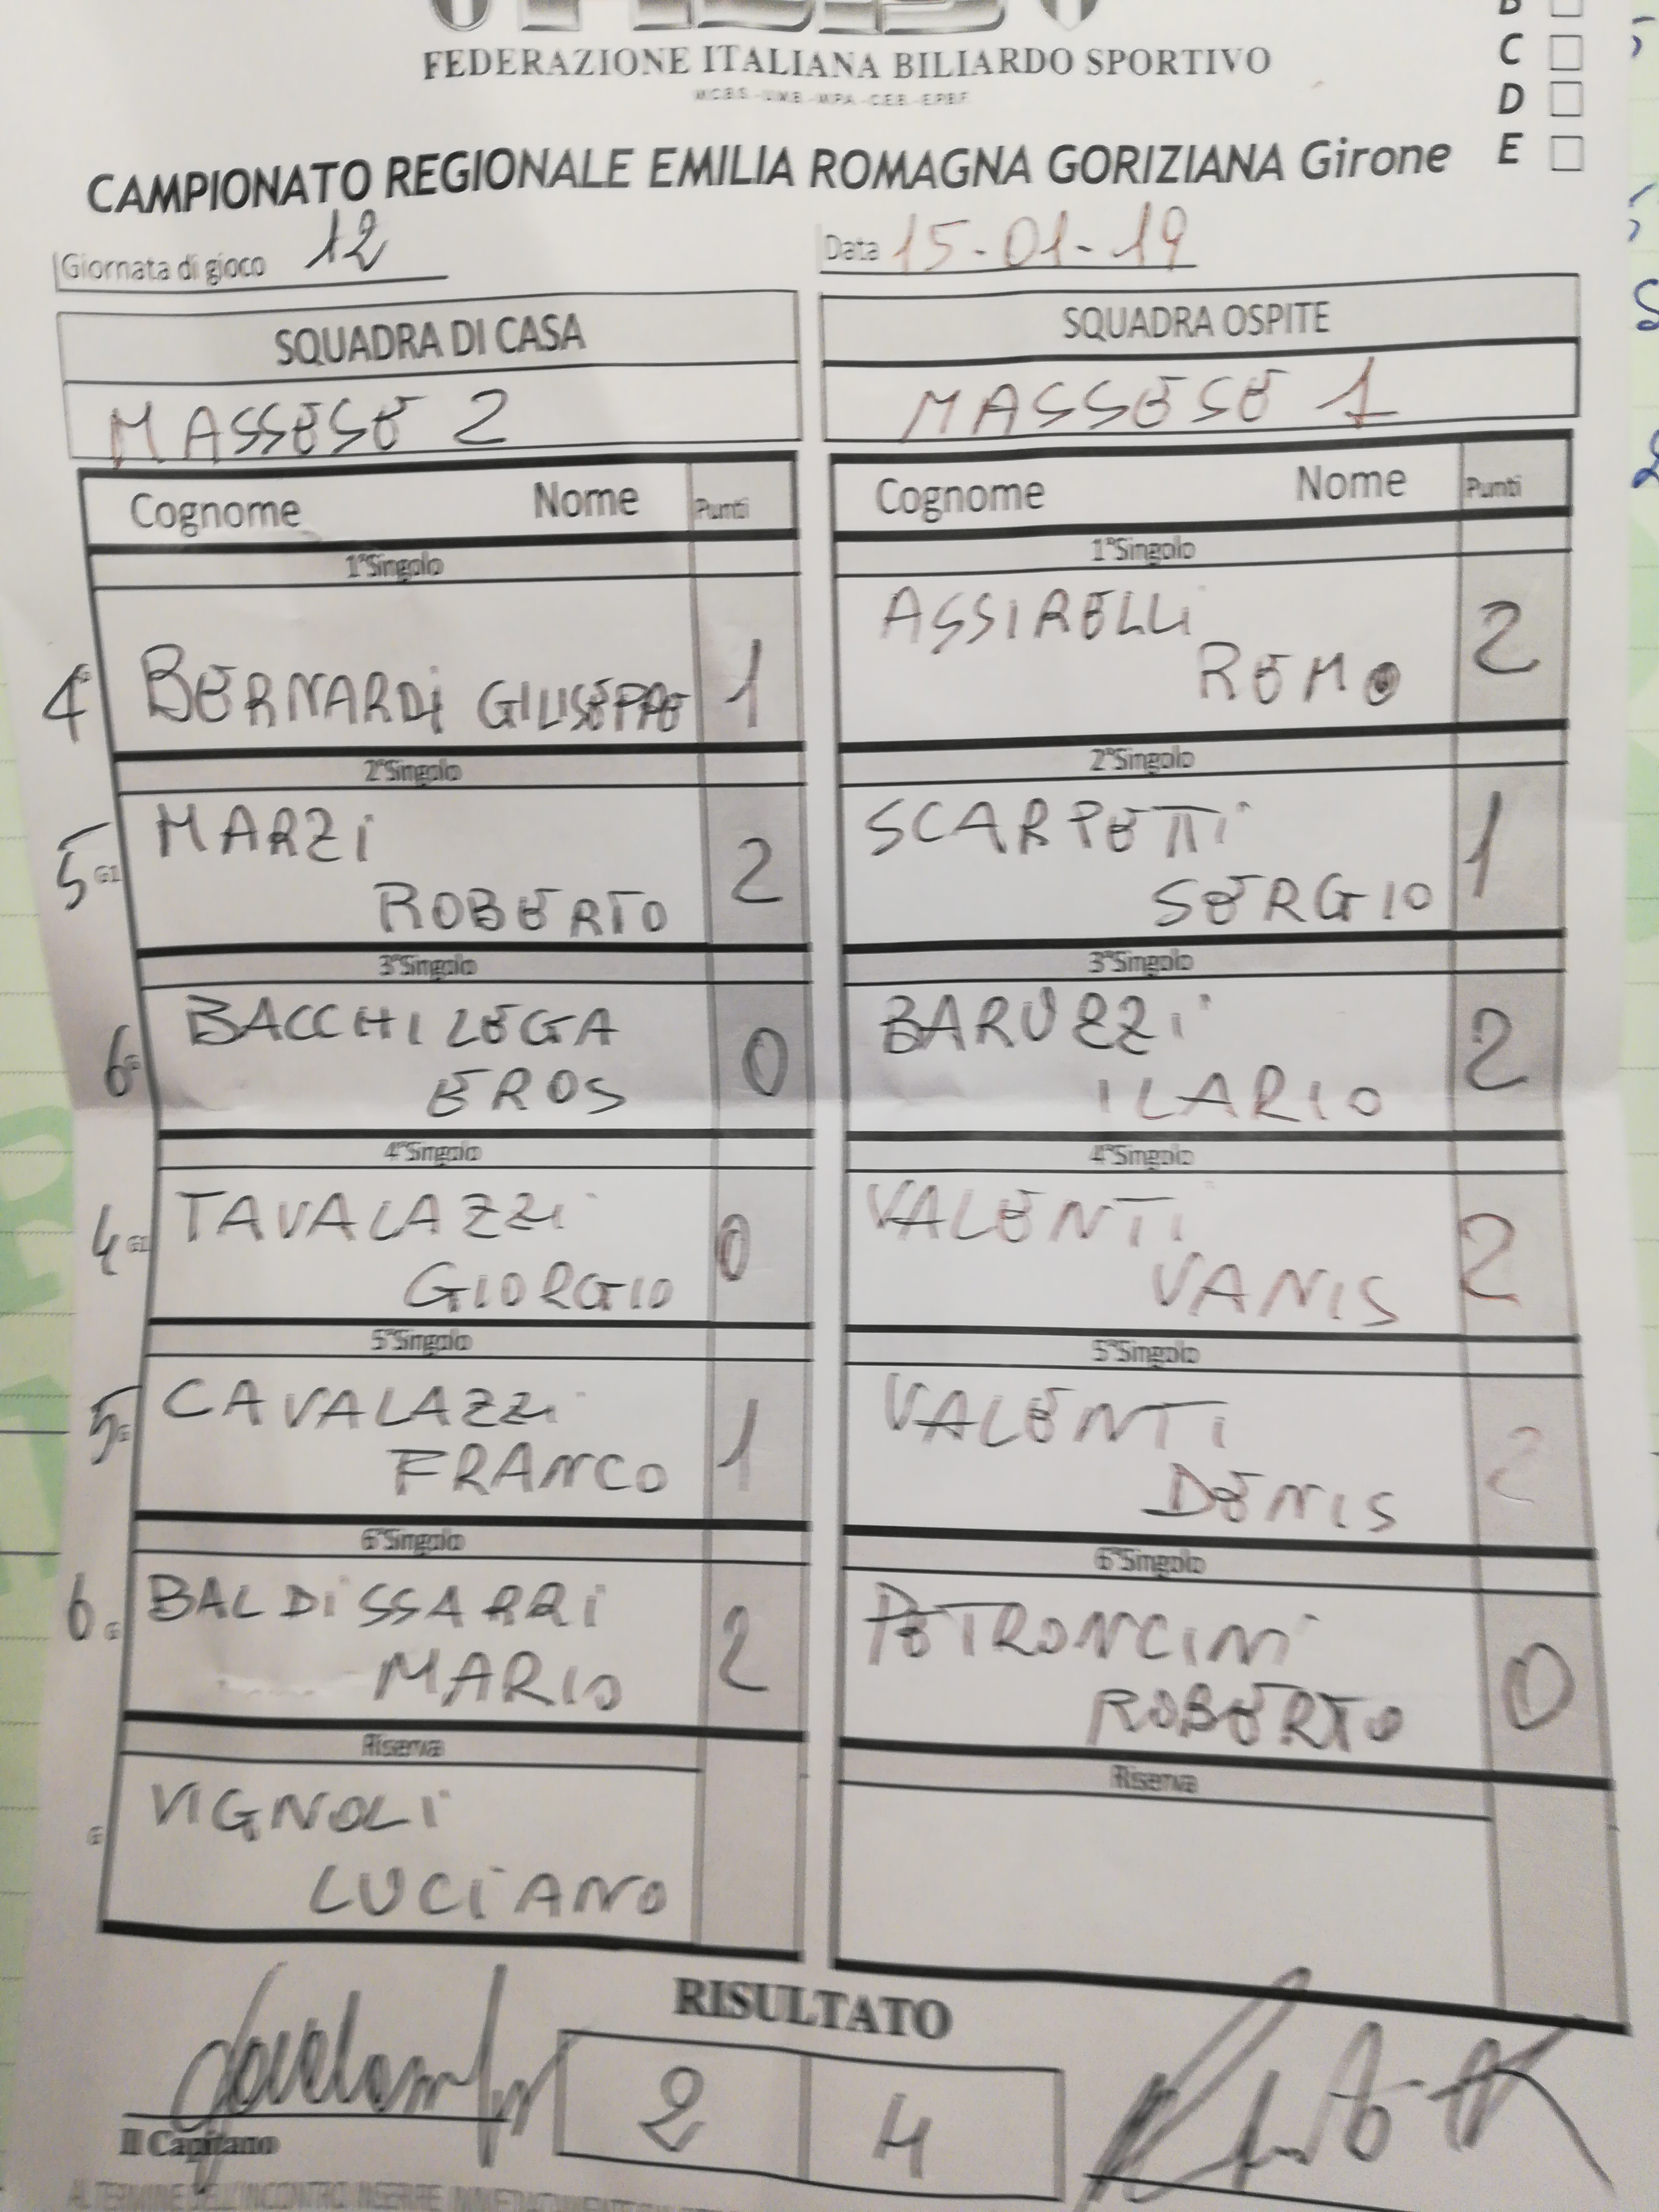 FEDERAZIONE ITALIANA BILIARDO SPORTIVO
M.C.B.S. - U.M.B. - M.P.A. - C.E.B. - E.P.B.F.
C
D
E
CAMPIONATO REGIONALE EMILIA ROMAGNA GORIZIANA Girone
Giornata di gioco 12
Data 15-01-19
SQUADRA DI CASA
SQUADRA OSPITE
MASSESE 2
MASSESE 1
Cognome Nome Punti
Cognome Nome Punti
1°Singolo
1°Singolo
4 BERNARDI GIUSEPPE 1
ASSIRELLI
REMO 2
2°Singolo
2°Singolo
5 MARZI
ROBERTO 2
SCARPETTI
SERGIO 1
3°Singolo
3°Singolo
6 BACCHILEGA
EROS 0
BARUZZI
ILARIO 2
4°Singolo
4°Singolo
4 TAVALAZZI
GIORGIO 0
VALENTI
VANIS 2
5°Singolo
5°Singolo
5 CAVALAZZI
FRANCO 1
VALENTI
DENIS 2
6°Singolo
6°Singolo
6 BALDISSARRI
MARIO 2
PETRONCINI
ROBERTO 0
Riserva
Riserva
VIGNOLI
LUCIANO
RISULTATO
2 4
Il Capitano
AL TERMINE DELL'INCONTRO INSERIRE IMMEDIATAMENTE